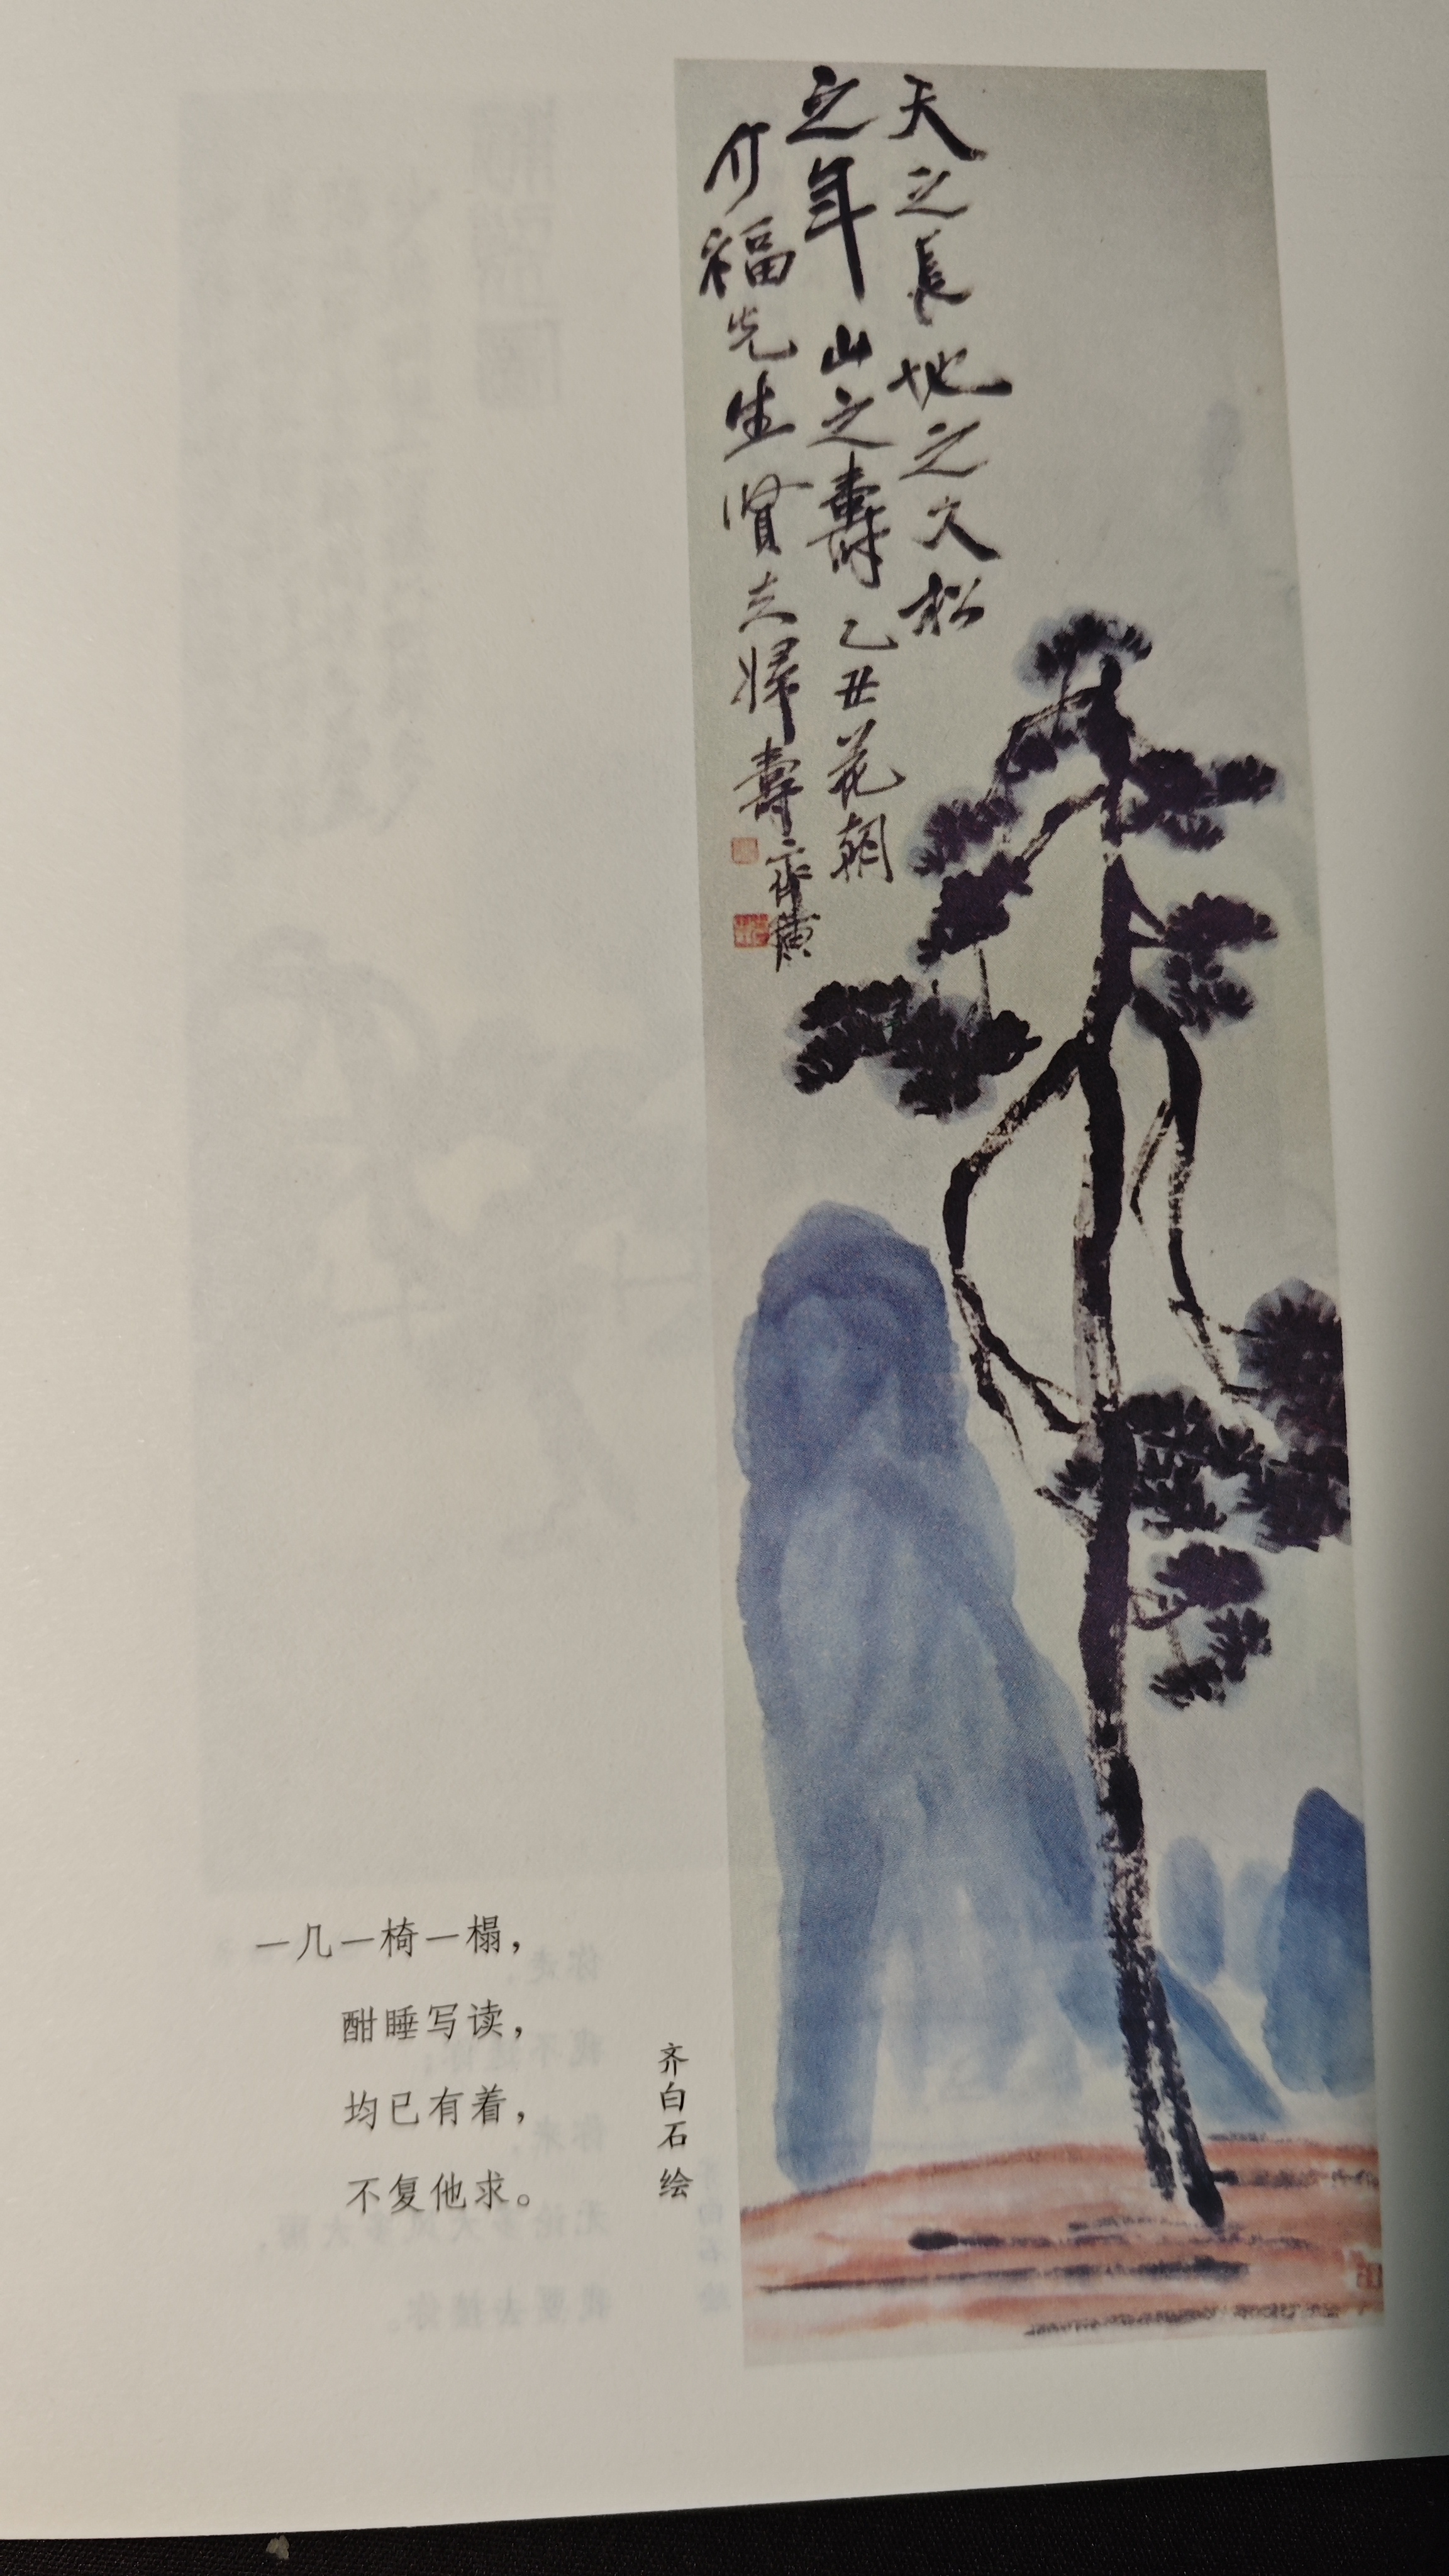 天之長地之久松
之年山之壽乙丑花朝
介福先生賢夫婦壽
齊璜
一几一椅一榻，
酣睡写读，
均已有着，
不复他求。
齐白石 绘